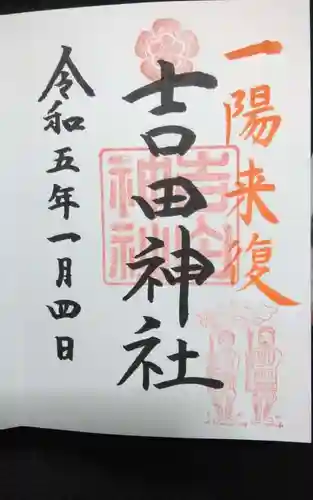 一陽来復
吉田神社
令和五年一月四日